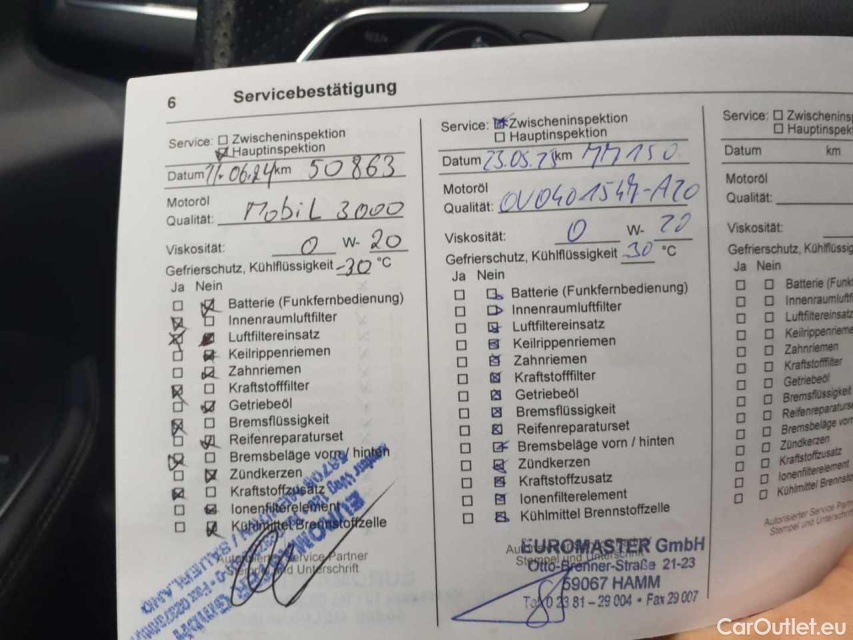 6
Servicebestätigung
Service: Zwischeninspektion
Hauptinspektion
Datum 11.06.24 km 50863
Motoröl
Qualität: Mobil 3000
Viskosität: 0 W- 20
Gefrierschutz, Kühlflüssigkeit -30 °C
Ja Nein
Batterie (Funkfernbedienung)
Innenraumluftfilter
Luftfiltereinsatz
Keilrippenriemen
Zahnriemen
Kraftstofffilter
Getriebeöl
Bremsflüssigkeit
Reifenreparaturset
Bremsbeläge vorn / hinten
Zündkerzen
Kraftstoffzusatz
Ionenfilterelement
Kühlmittel Brennstoffzelle
Autorisierter Service Partner
Stempel und Unterschrift
Service: Zwischeninspektion
Hauptinspektion
Datum 23.05.25 km 77150
Motoröl
Qualität: OV0401547-A20
Viskosität: 0 W- 20
Gefrierschutz, Kühlflüssigkeit -30 °C
Ja Nein
Batterie (Funkfernbedienung)
Innenraumluftfilter
Luftfiltereinsatz
Keilrippenriemen
Zahnriemen
Kraftstofffilter
Getriebeöl
Bremsflüssigkeit
Reifenreparaturset
Bremsbeläge vorn / hinten
Zündkerzen
Kraftstoffzusatz
Ionenfilterelement
Kühlmittel Brennstoffzelle
Stempel und Unterschrift
EUROMASTER GmbH
Otto-Brenner-Straße 21-23
59067 HAMM
Tel. 0 23 81 - 29 004 • Fax 29 007
Service: Zwischeninsp
Hauptinspek
Datum km
Motoröl
Qualität:
Viskosität:
Gefrierschutz, Kühlflüssig
Ja Nein
Batterie (Funk
Innenraumluft
Luftfiltereinsa
Keilrippenrieme
Zahnriemen
Kraftstofffilter
Getriebeöl
Bremsflüssigkeit
Reifenreparaturse
Bremsbeläge vorn
Zündkerzen
Kraftstoffzusatz
Ionenfilterelement
Kühlmittel Brennstof
Autorisierter Service Part
Stempel und Unterschri
CarOutlet.eu